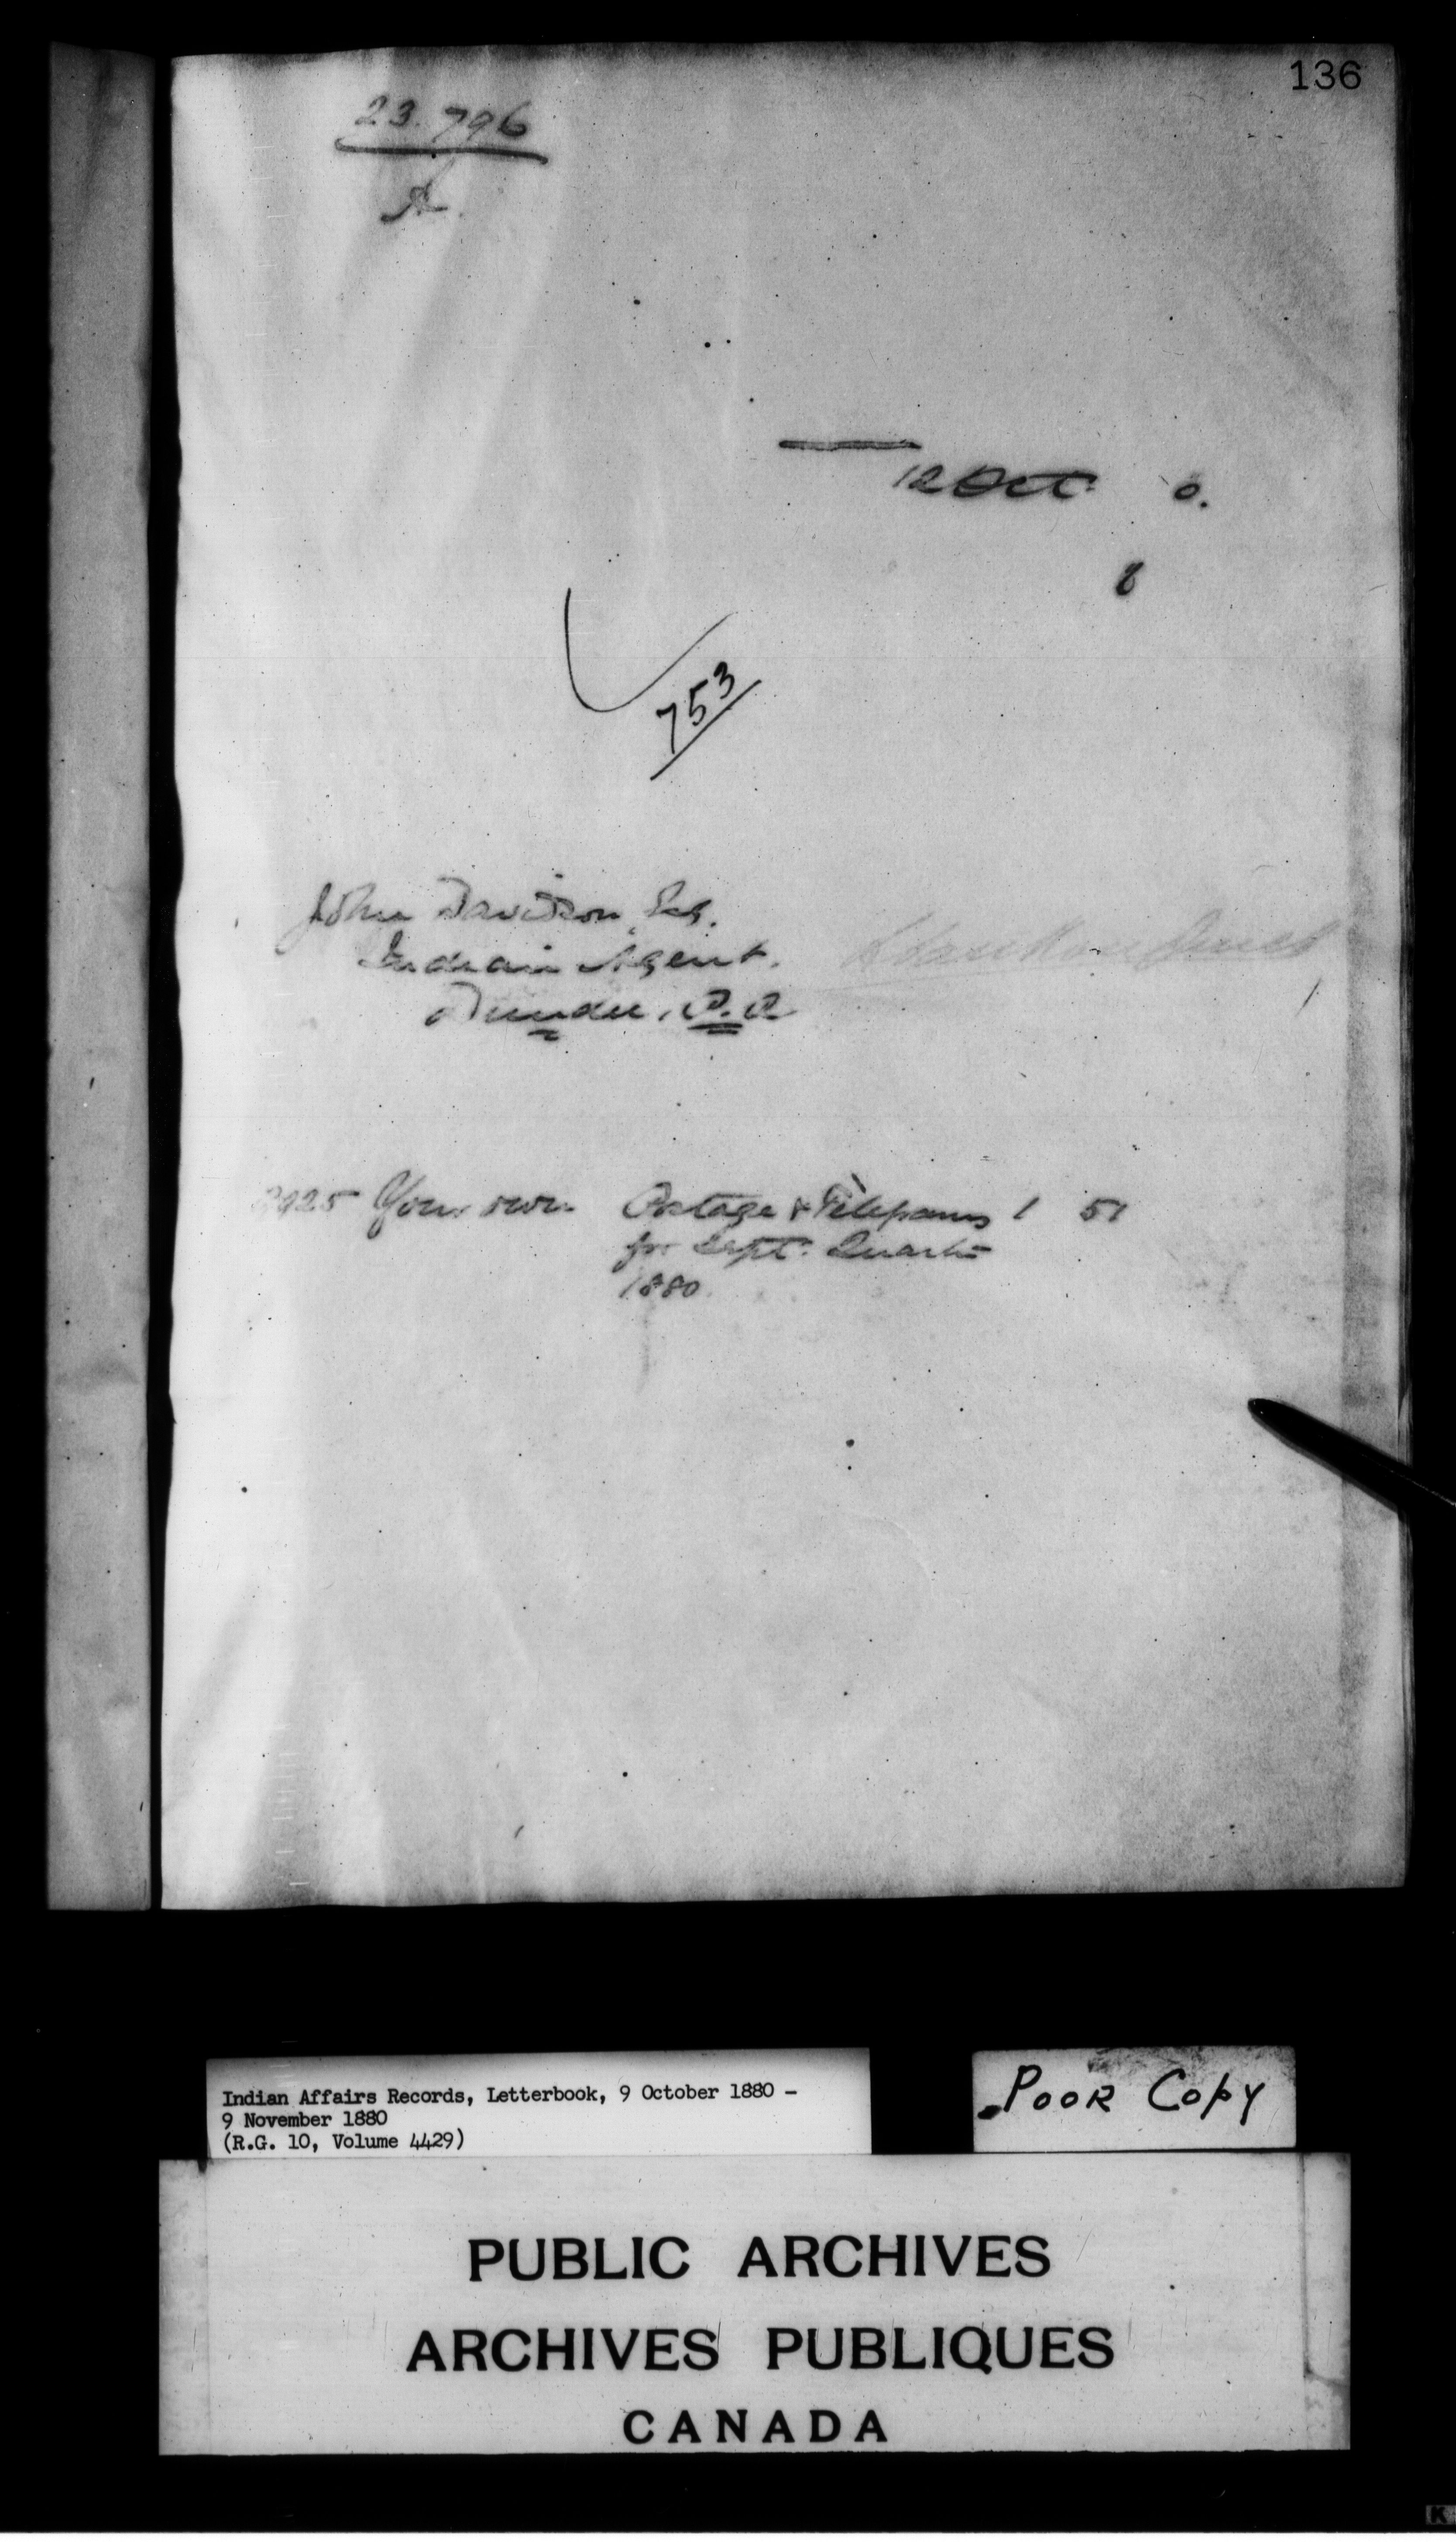 136
23.796
A.
12 Oct. 0.
8
753
John Davidson Esq.
Indian Agent.
Dundee. P.Q
Your own Postage & Telegrams 1 51
for Sept. Quarter
1880.
Indian Affairs Records, Letterbook, 9 October 1880 –
9 November 1880
(R.G. 10, Volume 4429)
Poor Copy
PUBLIC ARCHIVES
ARCHIVES PUBLIQUES
CANADA